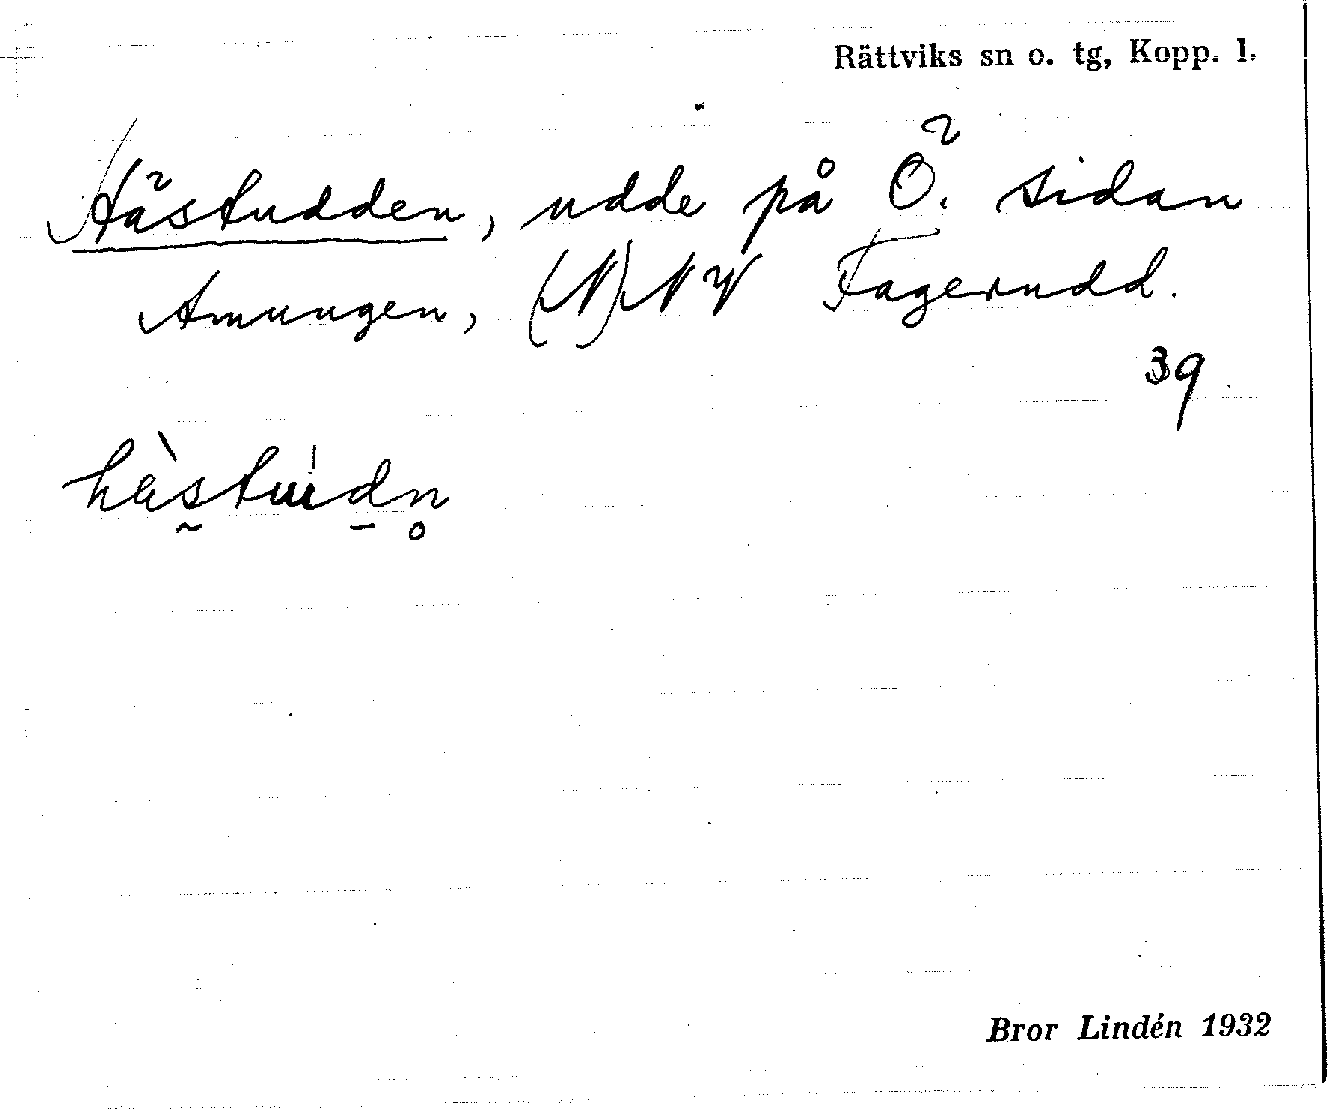 Rättviks sn o. tg, Kopp. l.
Hästudden, udde på Ö. sidan
Amungen, (N)NV Fagerudd.
39
hàstu̍dn̥
Bror Lindén 1932